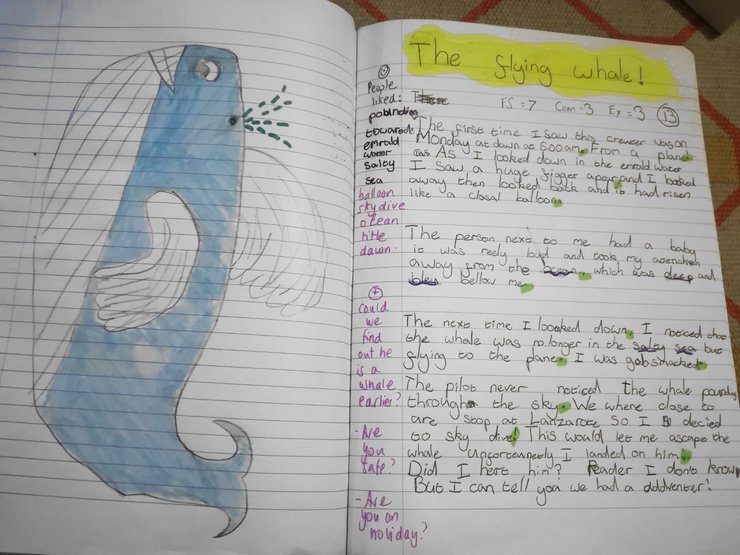 The flying whale!
FS = 7 Com = 3 Ex = 3 13
People
liked:
pobinding
towards
emrald
water
salty
sea
balloon
skydive
ocean
title
dawn.
could
we
find
out he
is a
whale
earlier?
- Are
you
safe?
- Are
you on
holiday?
The first time I saw this creater was on
Monday at dawn at 6:00am. From a plane.
As I looked down in the emrald water
I saw a huge figger apear, and I looked
away then looked back and it had risen
like a closal balloon.
The person next to me had a baby
it was reely loud and took my atenchen
away from the ocean, which was deep and
bleu bellow me.
The next time I loocked down, I noticed that
the whale was no longer in the salty sea but
flying to the plane. I was gobsmacked.
The pilot never noticed the whale pounding
through the sky. We where close to
are stop at Lanzarote so I decied
to sky dive! This would let me ascape the
whale unfortenetly I landed on him!
Did I hert him? Reader I dont know
But I can tell you we had a addventer!